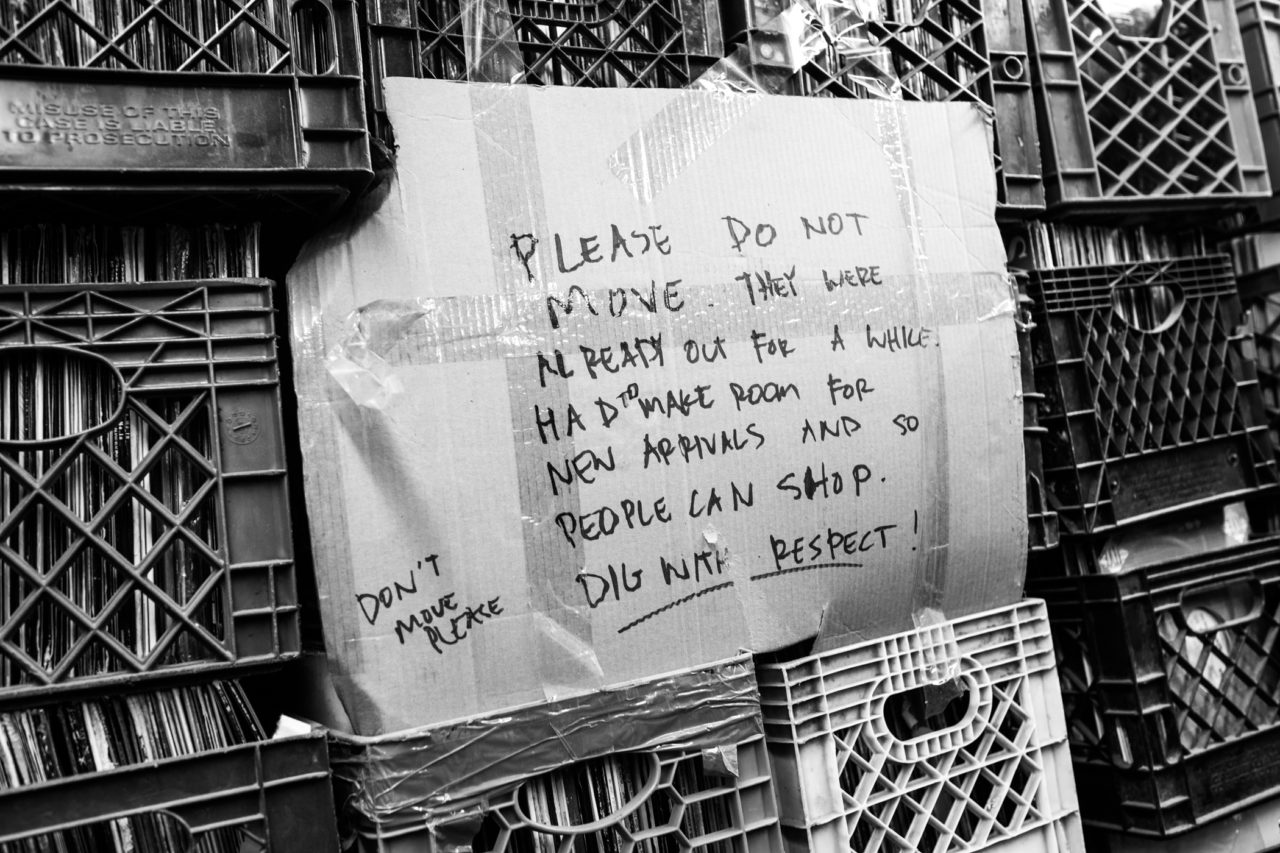 MISUSE OF THIS
CASE IS LIABLE
TO PROSECUTION
PLEASE DO NOT
MOVE. THEY WERE
ALREADY OUT FOR A WHILE.
HAD TO MAKE ROOM FOR
NEW ARRIVALS AND SO
PEOPLE CAN SHOP.
DIG WITH RESPECT!
DON'T
MOVE
PLEASE